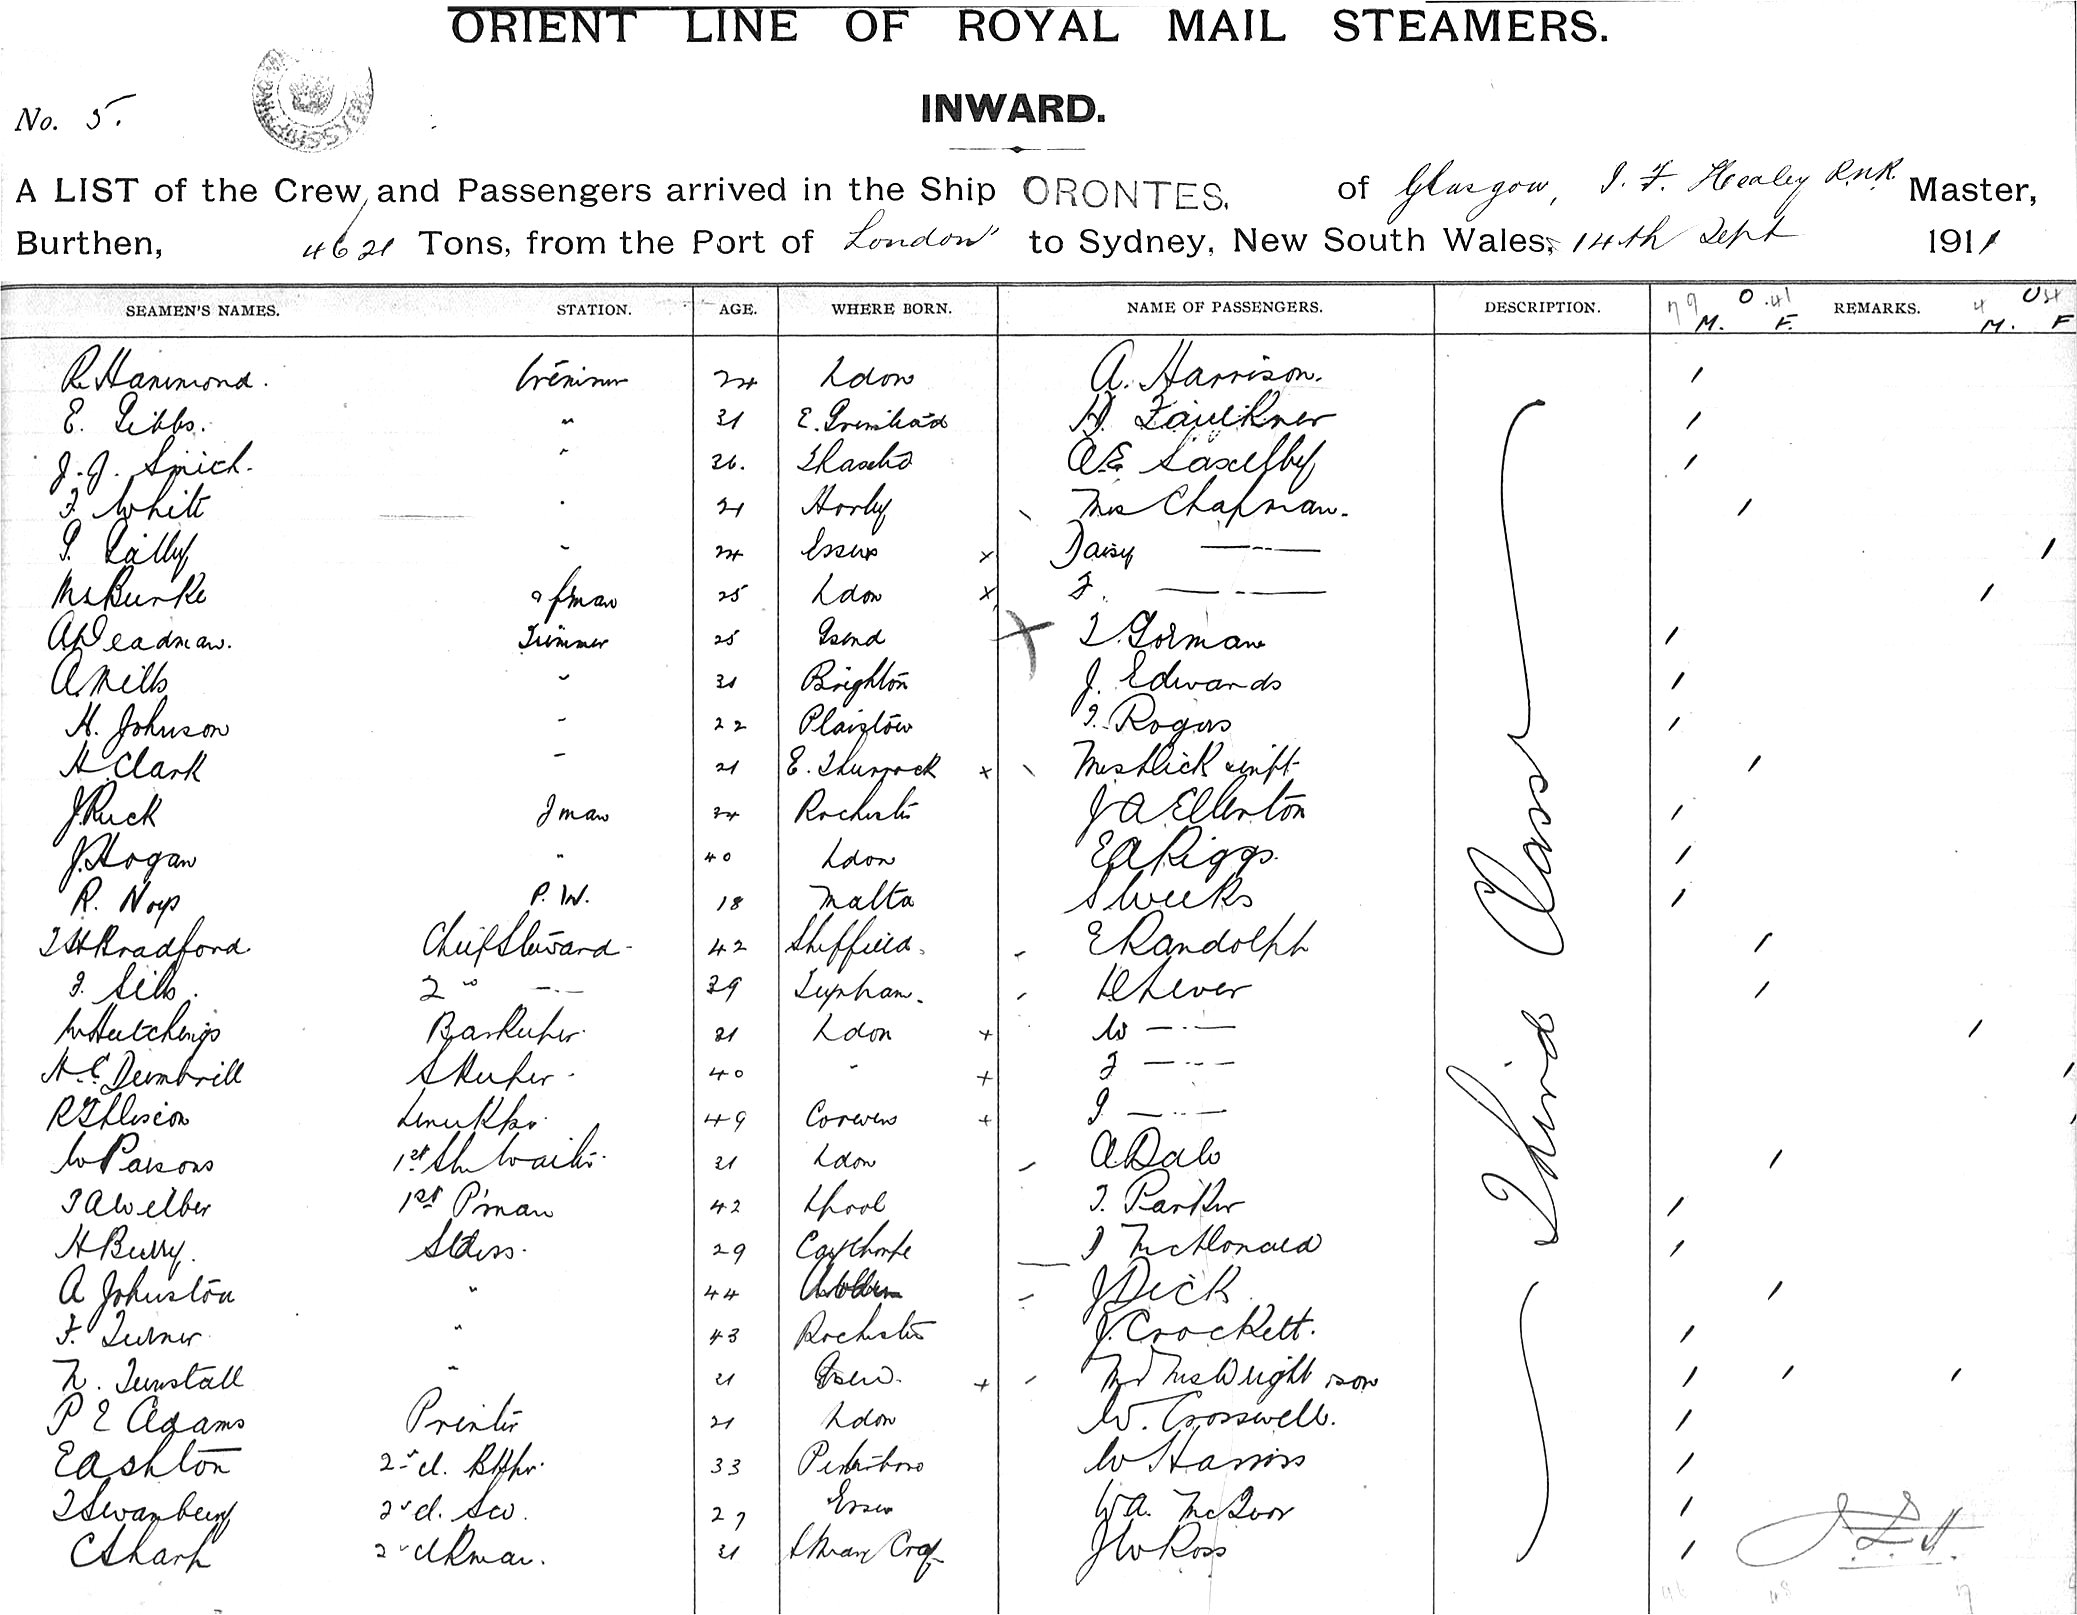 ORIENT LINE OF ROYAL MAIL STEAMERS.
No. 5.
INWARD.
A LIST of the Crew and Passengers arrived in the Ship ORONTES. of Glasgow, J. F. Healey R.N.R. Master,
Burthen, 4621 Tons, from the Port of London to Sydney, New South Wales, 14th Sept 1911
SEAMEN'S NAMES. STATION. AGE. WHERE BORN. NAME OF PASSENGERS. DESCRIPTION. M. F. REMARKS. M. F
R Hammond. 24 Ldon A. Harrison.
E. Gibbs. " 31 E. Grinstead H. Faulkner
J. J. 26. A E Saxelby
F. White 21 Horley Mrs Chapman.
24 Essex x Daisy
Burke 25 Ldon x F.
A Deadman. Trimmer 25 Gsend X T. Gorman
A. Mills " 31 Brighton J. Edwards
H. Johnson " 22 Plaistow T. Rogers
H Clark " 21 E. Thurrock x Mrs Dick & inft
J. Ruck Fman 34 Rochester J A Ellerton
J. Hogan " 40 Ldon E A Riggs.
R. P. W. 18 Malta S Weeks
T H Bradford. Chief Steward 42 Sheffield. E Randolph
2 " 39 D Lever
W Hutchings Barkeeper 31 Ldon + W
H. C. Dumbrill SKeeper 40 " + F
R T 49 Corwen + G
W Parsons 1st Waiter 31 Ldon A Dale
T A Welber 1st P'man 42 Lpool T. Parker
H Burry. Stdess. 29 Caythorpe J McDonald
A Johnston " 44 J Dick
F. Turner " 43 Rochester J. Crockett.
N. Tunstall " 21 + Mr Mrs Wright & son
P E Adams Printer 21 Ldon W. Crosswell.
E Ashton 2nd cl. Bkpr. 33 Peterboro W Harriss
T Swanberg 2nd cl. 27 Essex W A. McIvor
C Sharp 2nd cl 21 S Mary Cray J W Ross
Third Class